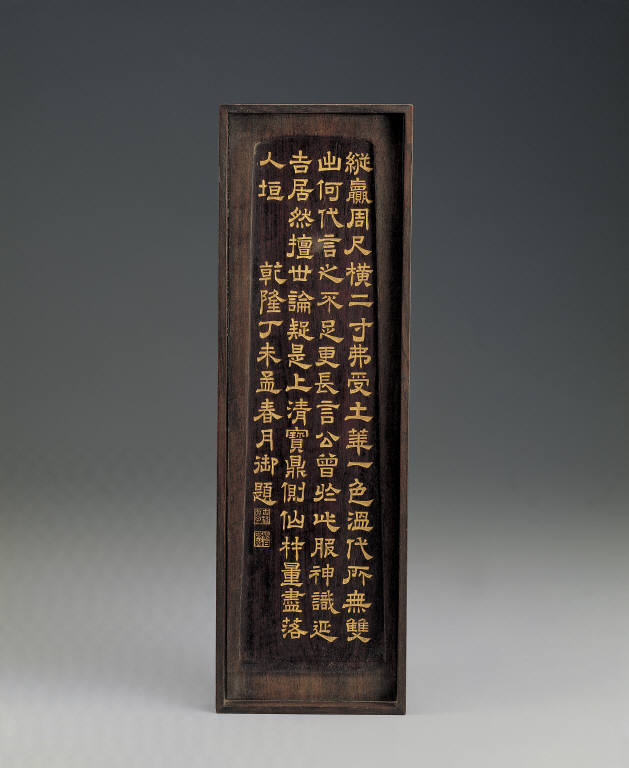 縱贏周尺橫二寸弗受土華一色溫代所無雙
出何代言之不足更長言公曾於此服神識延
吉居然擅世論疑是上清寶鼎側仙杵量盡落
人垣 乾隆丁未孟春月御題